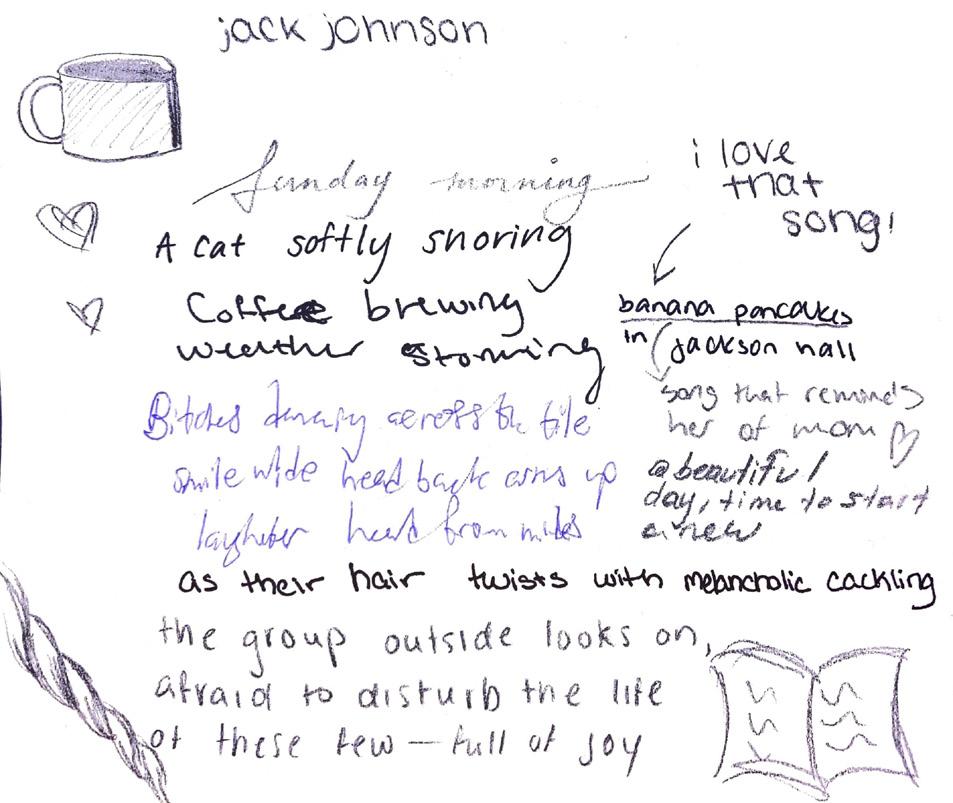 jack johnson
Sunday morning
A cat softly snoring
Coffee brewing
weather storming
Bitches dancing across the tile
smile wide head back arms up
laughter heard from miles
as their hair twists with melancholic cackling
the group outside looks on,
afraid to disturb the life
of these few — full of joy
i love
that
song!
banana pancakes
in jackson hall
song that reminds
her of mom
a beautiful
day, time to start
a new